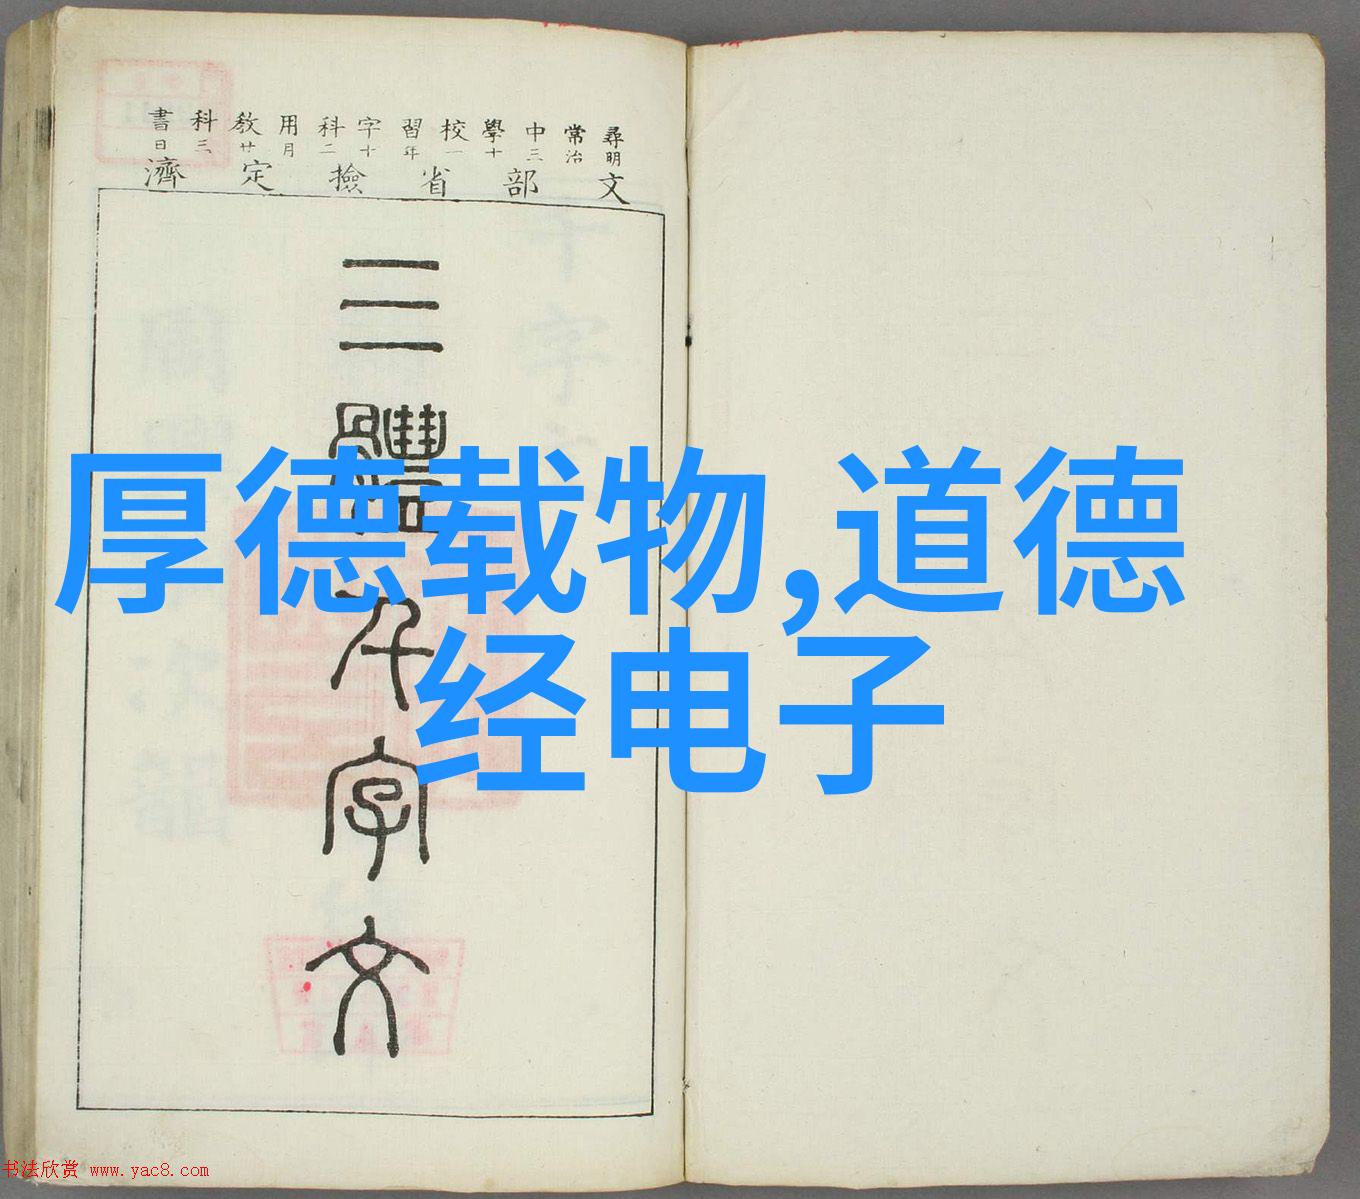 尋常中學校習字科用教科書
明治三十一年十二月廿三日
文部省撿定濟
三體千字文
厚德载物,道德
经电子
书法欣赏 www.yac8.com